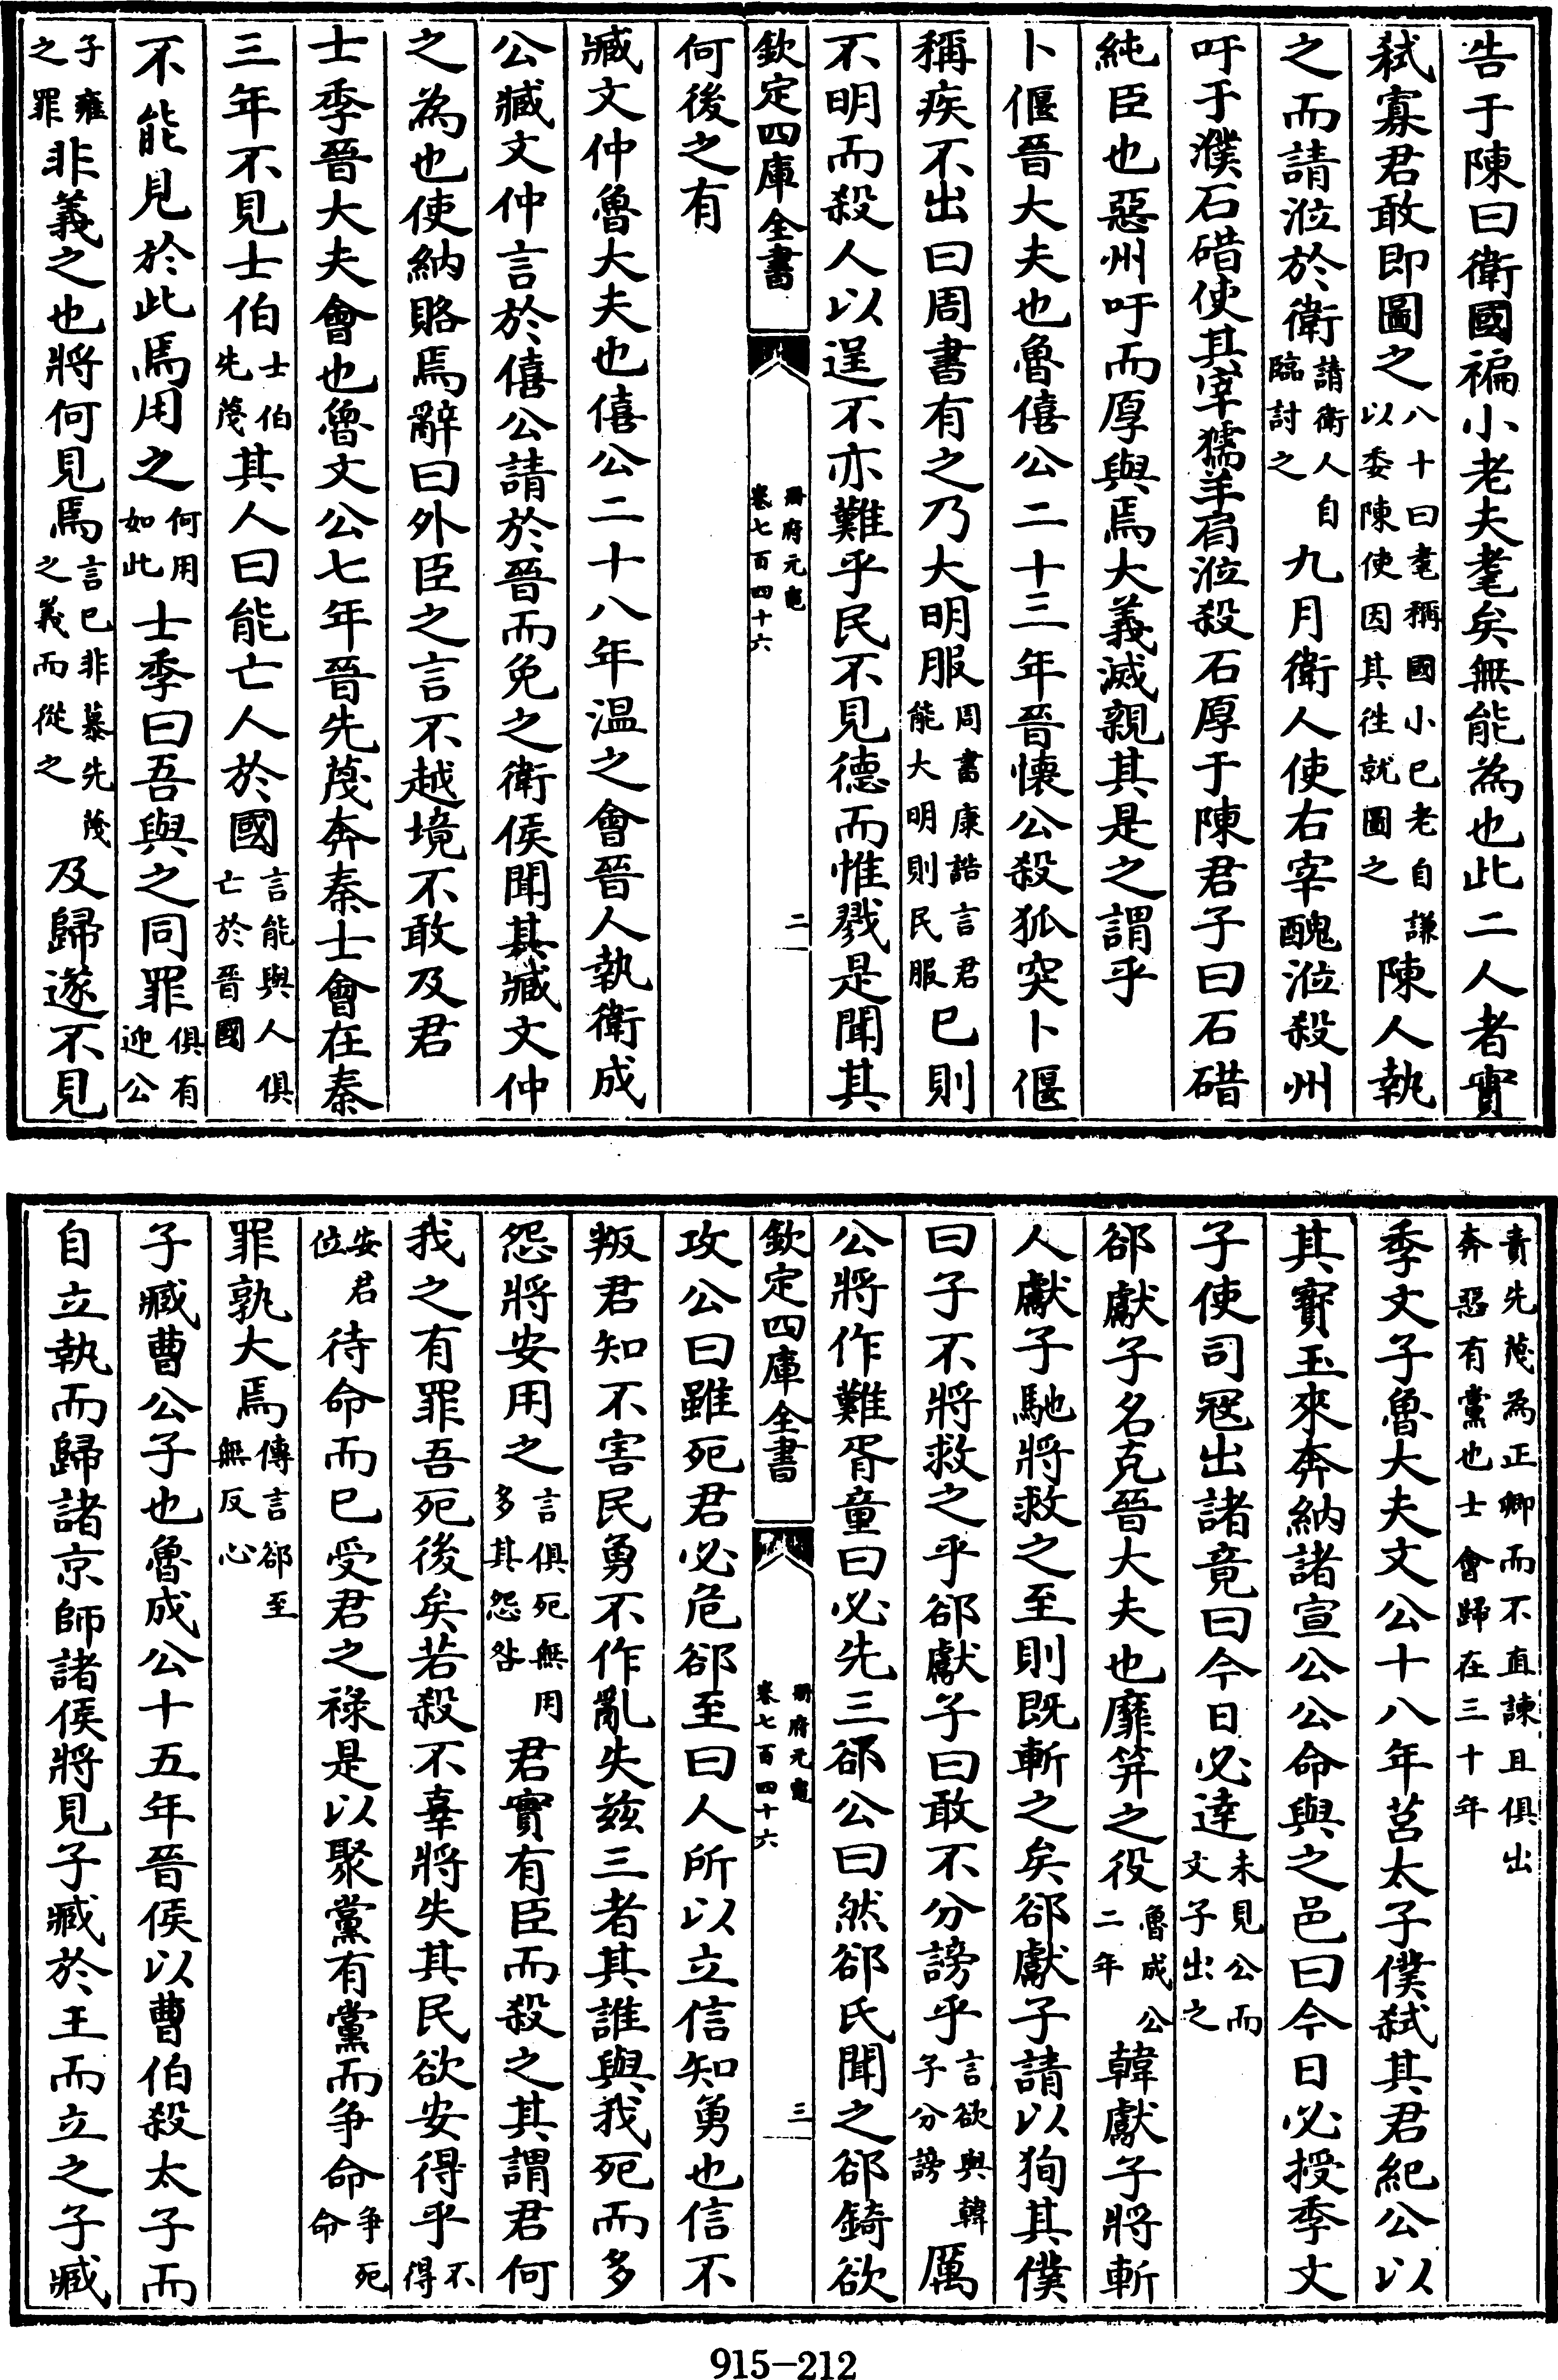 告于陳曰衛國褊小老夫耄矣無能為也此二人者實
弑寡君敢即圖之八十曰耄稱國小己老自謙以委陳使因其徃就圖之陳人執
之而請涖於衛請衛人自臨討之九月衛人使右宰醜涖殺州
吁于濮石碏使其宰獳羊肩涖殺石厚于陳君子曰石碏
純臣也惡州吁而厚與焉大義滅親其是之謂乎
卜偃晉大夫也魯僖公二十三年晉懷公殺狐突卜偃
稱疾不出曰周書有之乃大明服周書康誥言君能大明則民服已則
不明而殺人以逞不亦難乎民不見德而惟戮是聞其
欽定四庫全書 冊府元龜卷七百四十六 二
何後之有
臧文仲魯大夫也僖公二十八年温之會晉人執衛成
公臧文仲言於僖公請於晉而免之衛侯聞其臧文仲
之為也使納賂焉辭曰外臣之言不越境不敢及君
士季晉大夫會也魯文公七年晉先茂奔秦士會在秦
三年不見士伯士伯先茂其人曰能亡人於國言能與人俱亡於晉國
不能見於此焉用之何用如此士季曰吾與之同罪俱有迎公
子雍之罪非義之也將何見焉言已非慕先茂之義而從之及歸遂不見
責先茂為正卿而不直諫且俱出奔惡有黨也士會歸在三十年
季文子魯大夫文公十八年莒太子僕弑其君紀公以
其寳玉來奔納諸宣公公命與之邑曰今日必授季文
子使司冦出諸竟曰今日必達未見公而文子出之
郤獻子名克晉大夫也靡笄之役魯成公二年韓獻子將斬
人獻子馳將救之至則既斬之矣郤獻子請以狥其僕
曰子不將救之乎郤獻子曰敢不分謗乎言欲與韓子分謗厲
公將作難胥童曰必先三郤公曰然郤氏聞之郤錡欲
欽定四庫全書 冊府元龜卷七百四十六 三
攻公曰雖死君必危郤至曰人所以立信知勇也信不
叛君知不害民勇不作亂失兹三者其誰與我死而多
怨將安用之言俱死無用多其怨咎君實有臣而殺之其謂君何
我之有罪吾死後矣若殺不辜將失其民欲安得乎不得
安君位待命而已受君之禄是以聚黨有黨而争命争死命
罪孰大焉傳言郤至無反心
子臧曹公子也魯成公十五年晉侯以曹伯殺太子而
自立執而歸諸京師諸侯將見子臧於王而立之子臧
915-212